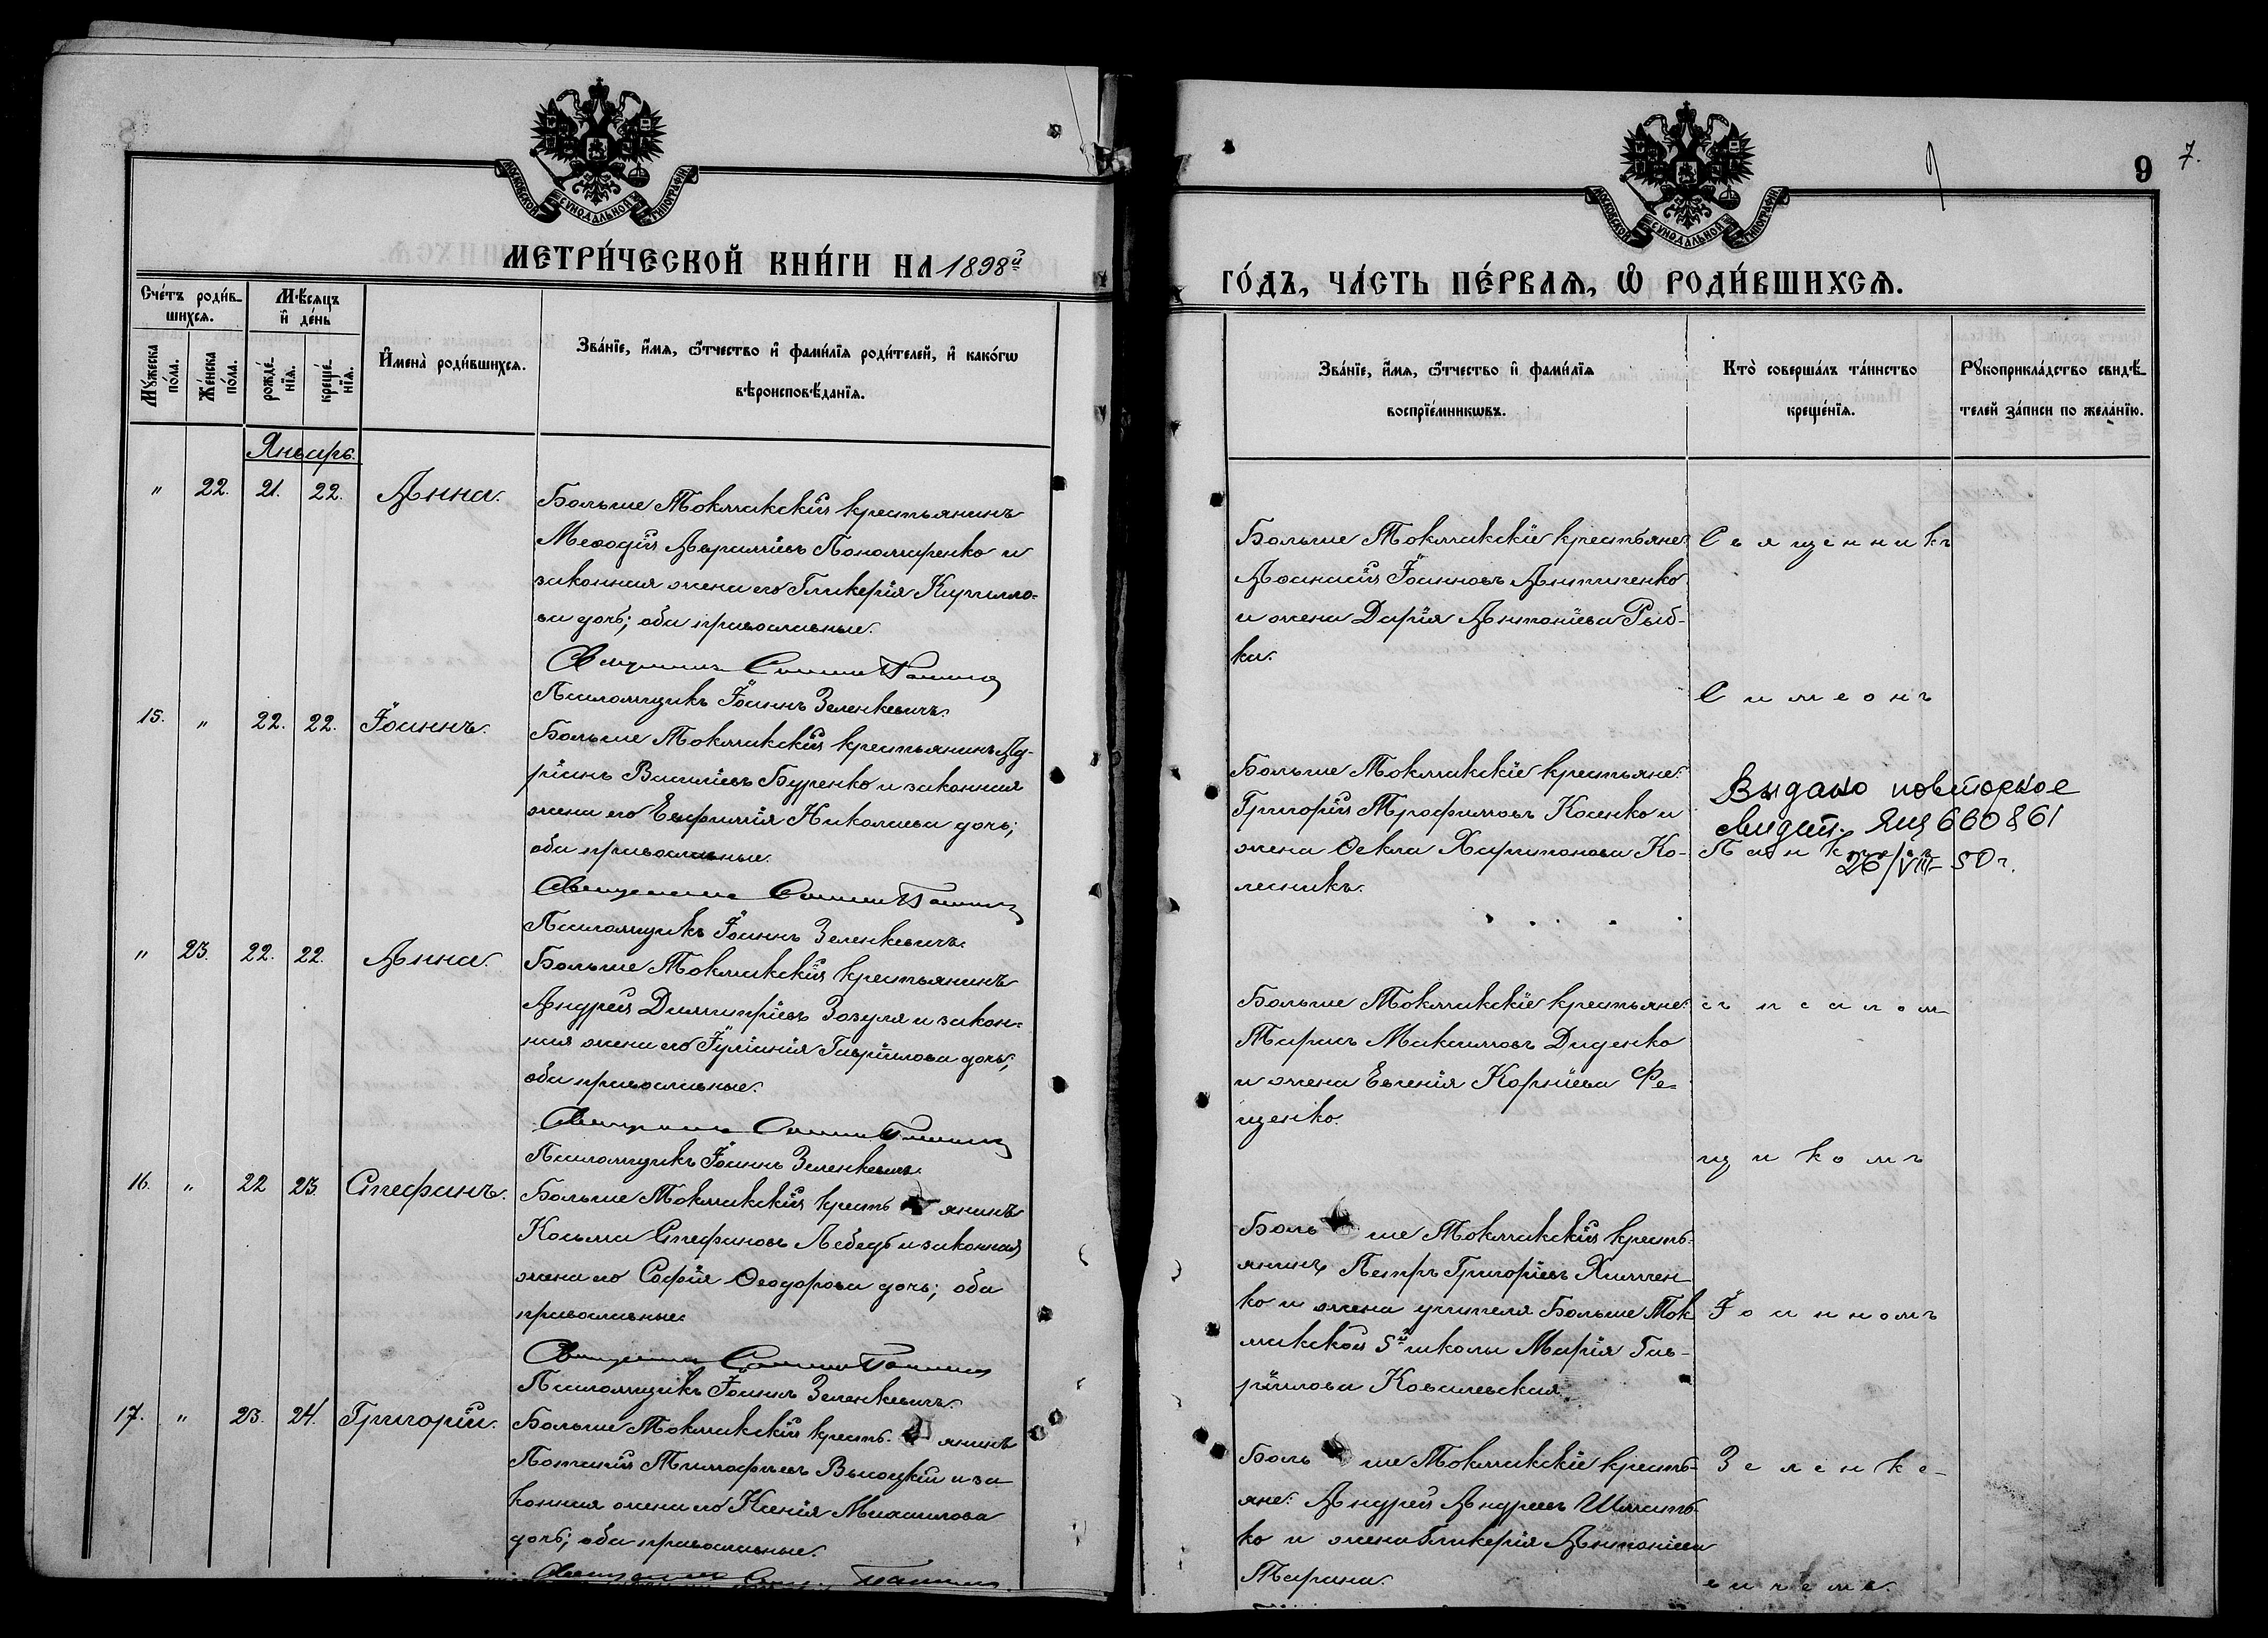 МОСКОВСКОЙ СѴНОДАЛЬНОЙ ТИПОГРАФІИ
МЕТРИ́ЧЕСКОЙ КНИ́ГИ НА 1898й
Сче́тъ роди́в-
шихсѧ.
Мѣ́сѧцъ
и҆ де́нь
Мꙋ́жеска
по́ла.
Же́нска
по́ла.
рожде́-
нїѧ.
креще́-
нїѧ.
И҆мена̀ роди́вшихсѧ.
Зва́нїе, и҆́мѧ, ѻ҆́тчество и҆ фами́лїѧ роди́телей, и҆ како́гѡ
вѣроисповѣ́данїѧ.
Январь.
" 22. 21. 22. Анна.
Больше Токмакскій крестьянинъ
Меѳодій Авраміевъ Пономаренко и
законная жена его Гликерія Кирилло-
ва дочь; оба православные.
Священникъ Симеонъ
Псаломщикъ Іоаннъ Зеленкевичъ.
15. " 22. 22. Іоаннъ.
Больше Токмакскій крестьянинъ Ад-
ріанъ Василіевъ Буренко и законная
жена его Евфимія Николаева дочь;
оба православные.
Священникъ Симеонъ
Псаломщикъ Іоаннъ Зеленкевичъ.
" 23. 22. 22. Анна.
Больше Токмакскій крестьянинъ
Андрей Димитріевъ Зозуля и закон-
ная жена его Іуліанія Гавріилова дочь;
оба православные.
Священникъ Симеонъ
Псаломщикъ Іоаннъ Зеленкевичъ.
16. " 22 23. Стефанъ.
Больше Токмакскій кресть янинъ
Косьма Стефановъ Лебедь и законная
жена его Софія Ѳеодорова дочь; оба
православные.
Священникъ Симеонъ
Псаломщикъ Іоаннъ Зеленкевичъ.
17. " 23. 24. Григорій.
Больше Токмакскій кресть- янинъ
Потапій Тимофѣевъ Высоцкій и за
конная жена его Ксенія Михаилова
дочь; оба православные.
Священникъ
9 7.
МОСКОВСКОЙ СѴНОДАЛЬНОЙ ТИПОГРАФІИ
ГО́ДЪ, ЧА́СТЬ ПЕ́РВАѦ, Ѡ҆ РОДИ́ВШИХСѦ.
Зва́нїе, и҆́мѧ, ѻ҆́тчество и҆ фами́лїѧ
воспрїе́мникѡвъ.
Кто̀ соверша́лъ та́инство
креще́нїѧ.
Рꙋкоприкла́дство свидѣ́-
телей за́писи по жела́нїю.
Больше Токмакскіе крестьяне:
Аѳанасій Іоанновъ Антипенко
и жена Дарія Антоніева Рыб-
ка.
Священникъ
Симеонъ
Больше Токмакскіе крестьяне:
Григорій Трофимовъ Косенко и
жена Ѳекла Харитонова Ко-
лесникъ.
Выдано повторное
свидет. ЯЦ 660861
26/VIII-50 г.
Больше Токмакскіе крестьяне:
Тарасъ Максимовъ Диденко
и жена Евгенія Корніева Фе-
щенко.
съ псалом-
щикомъ
Боль ше Токмакскій кресть-
янинъ Петръ Григоріевъ Химчен
ко и жена учителя Больше Ток
макской 5й школы Марія Гав-
ріилова Ковалевская.
Іоанномъ
Боль ше Токмакскіе кресть-
яне: Андрей Андреевъ Шмать-
ко и жена Гликерія Антоніева
Тарана.
Зеленке-
вичемъ.